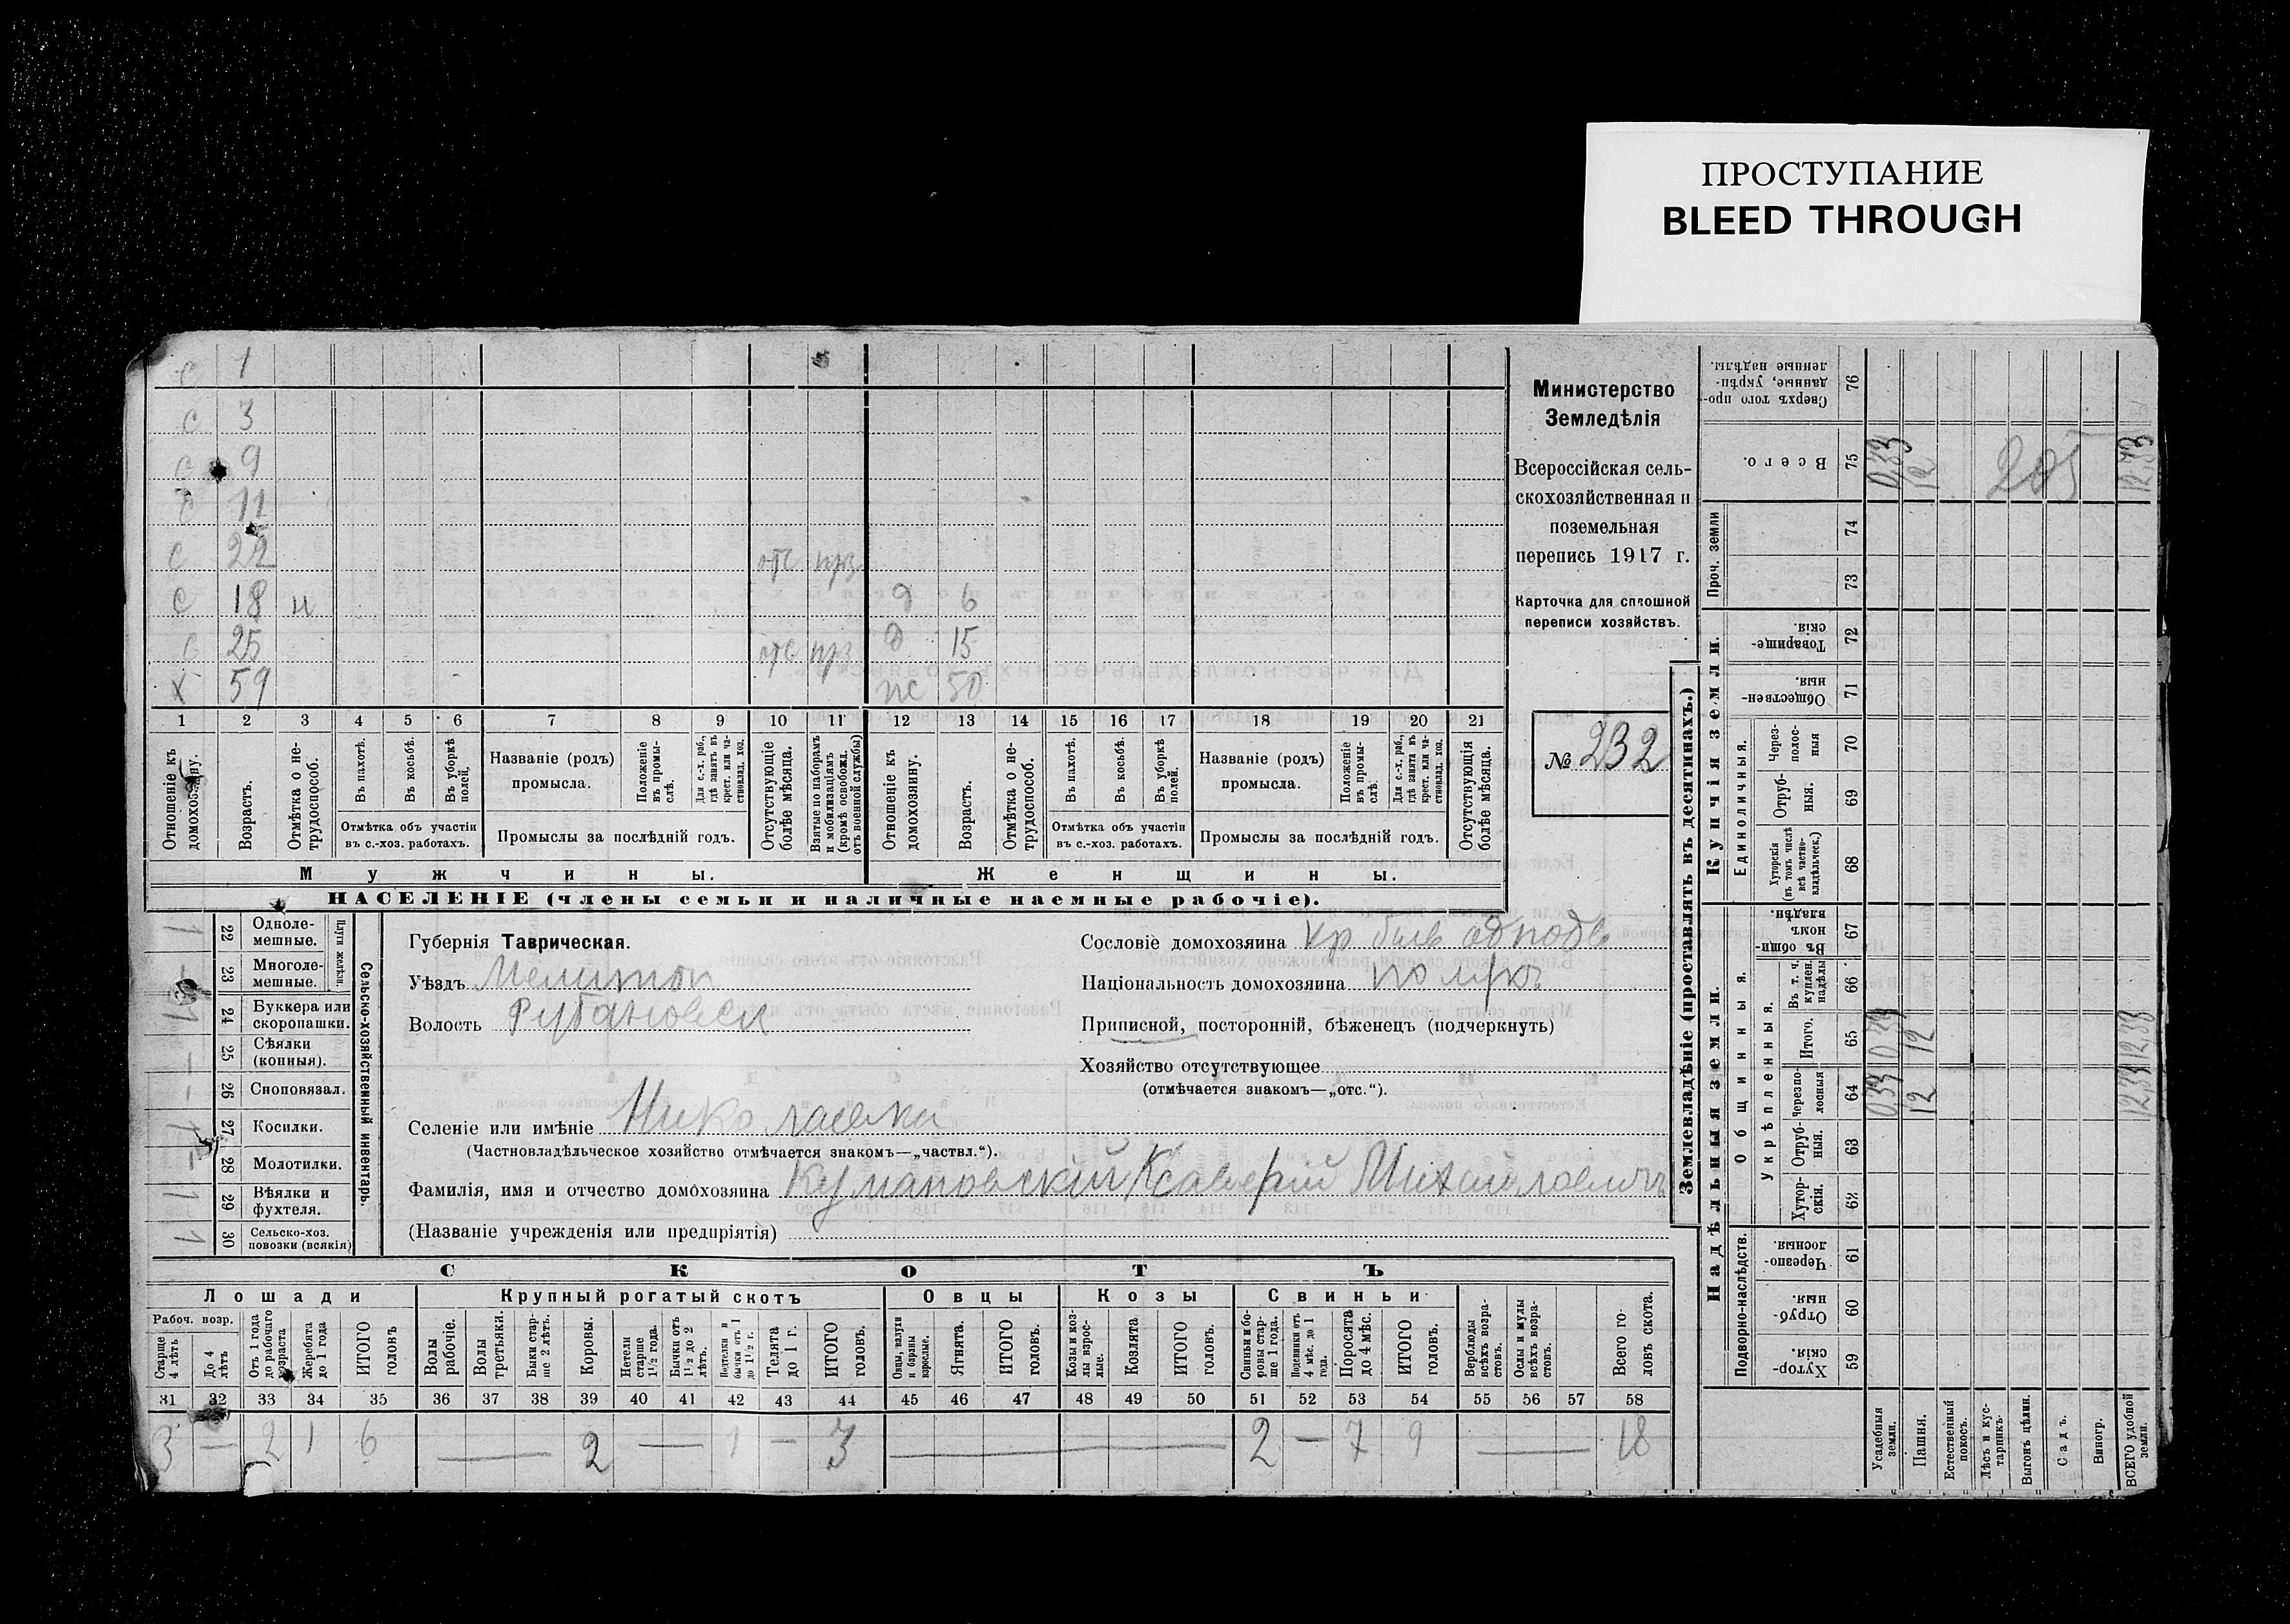 ПРОСТУПАНИЕ
BLEED THROUGH
с 1
с 3
с 9
с 11
с 22 отс прз
с 18 н д 6
с 25 отс прз д 15
х 59 жс 50
1 2 3 4 5 6 7 8 9 10 11 12 13 14 15 16 17 18 19 20 21
Отношеніе къ домохозяину.
Возрастъ.
Отмѣтка о не-трудоспособ.
Въ пахотѣ.
Въ косьбѣ.
Въ уборкѣ полей.
Отмѣтка объ участіи
въ с.-хоз. работахъ.
Названіе (родъ)
промысла.
Положеніе въ промы-слѣ.
Для с.-х. раб., гдѣ занятъ въ крест. или ча-ствовлад. хоз.
Промыслы за послѣдній годъ.
Отсутствующіе болѣе мѣсяца.
Взятые по наборамъ и мобилизаціямъ (кромѣ освобожд. отъ военной службы)
Отношеніе къ домохозяину.
Возрастъ.
Отмѣтка о не-трудоспособ.
Въ пахотѣ.
Въ косьбѣ.
Въ уборкѣ полей.
Отмѣтка объ участіи
въ с.-хоз. работахъ.
Названіе (родъ)
промысла.
Положеніе въ промы-слѣ.
Для с.-х. раб., гдѣ занята въ крест. или ча-ствовлад. хоз.
Промыслы за послѣдній годъ.
Отсутствующія болѣе мѣсяца.
Мужчины. Женщины.
НАСЕЛЕНІЕ (члены семьи и наличные наемные рабочіе).
Министерство
Земледѣлія
Всероссійская сель-
скохозяйственная и
поземельная
перепись 1917 г.
Карточка для сплошной
переписи хозяйствъ.
№ 232
Сельско-хозяйственный инвентарь.
Плуги желѣзн.
22 Одноле-мешные. 1
23 Многоле-мешные. –
24 Буккера или скоропашки. 1
25 Сѣялки (копныя). –
26 Сноповязал. –
27 Косилки. 1
28 Молотилки. –
29 Вѣялки и фухтеля. 1
30 Сельско-хоз. повозки (всякія) 1
Губернія Таврическая.
Уѣздъ Мелитоп
Волость Рубановск
Селеніе или имѣніе Николаевка
(Частновладѣльческое хозяйство отмѣчается знакомъ—„частвл.“).
Фамилія, имя и отчество домохозяина Кумановскій Ксаверій Михайловичъ
(Названіе учрежденія или предпріятія)
Сословіе домохозяина кр быв однодв
Національность домохозяина полякъ
Приписной, посторонній, бѣженецъ (подчеркнуть)
Хозяйство отсутствующее
(отмѣчается знакомъ—„отс.“).
СКОТЪ
Лошади Крупный рогатый скотъ Овцы Козы Свиньи
Рабоч. возр.
Старше 4 лѣтъ
До 4 лѣтъ
Отъ 1 года до рабочаго возраста
Жеребята до 1 года
ИТОГО головъ
Волы рабочіе.
Волы третьяки.
Быки стар-ше 2 лѣтъ.
Коровы.
Нетели старше 1½ года.
Бычки отъ 1½ до 2 лѣтъ.
Подтелки и бычки отъ 1 до 1½ г.
Телята до 1 г.
ИТОГО головъ.
Овцы, валухи и бараны взрослые.
Ягнята.
ИТОГО головъ.
Козы и коз-лы взрос-лые.
Козлята.
ИТОГО головъ.
Свиньи и бо-ровы стар-ше 1 года.
Подсвинки отъ 4 мѣс. до 1 года.
Поросята до 4 мѣс.
ИТОГО головъ.
Верблюды всѣхъ возра-стовъ.
Ослы и мулы всѣхъ возра-стовъ.
Всего го-ловъ скота.
31 32 33 34 35 36 37 38 39 40 41 42 43 44 45 46 47 48 49 50 51 52 53 54 55 56 57 58
3 – 2 1 6 — 2 — 1 – 3 — 2 – 7 9 — 18
Землевладѣніе (проставлять въ десятинахъ.)
Надѣльныя земли. Купчія земли. Проч. земли
Подворно-наслѣдств.
Общинныя.
Укрѣпленныя.
Единоличныя.
59 Хутор-скія.
60 Отруб-ныя.
61 Черезпо-лосныя.
62 Хутор-скія.
63 Отруб-ныя.
64 Черезпо-лосныя 033 12 12,33
65 Итого. 033 12 12,33
66 Въ т. ч. куплен. надѣлы
67 Въ общин-номъ владѣн.
68 Хуторскія (въ томъ числѣ всѣ частно-владѣльческ.)
69 Отруб-ныя.
70 Через-полос-ныя
71 Обществен-ныя.
72 Товарище-скія.
73
74
75 Всего. 0,33 12 205 12,33
76 Сверхъ того про-данные, укрѣп-ленные надѣлы.
Усадебныя земли.
Пашня.
Естественный покосъ.
Лѣсъ и кус-тарникъ.
Выгонъ цѣлин.
Садъ.
Виногр.
ВСЕГО удобной земли.